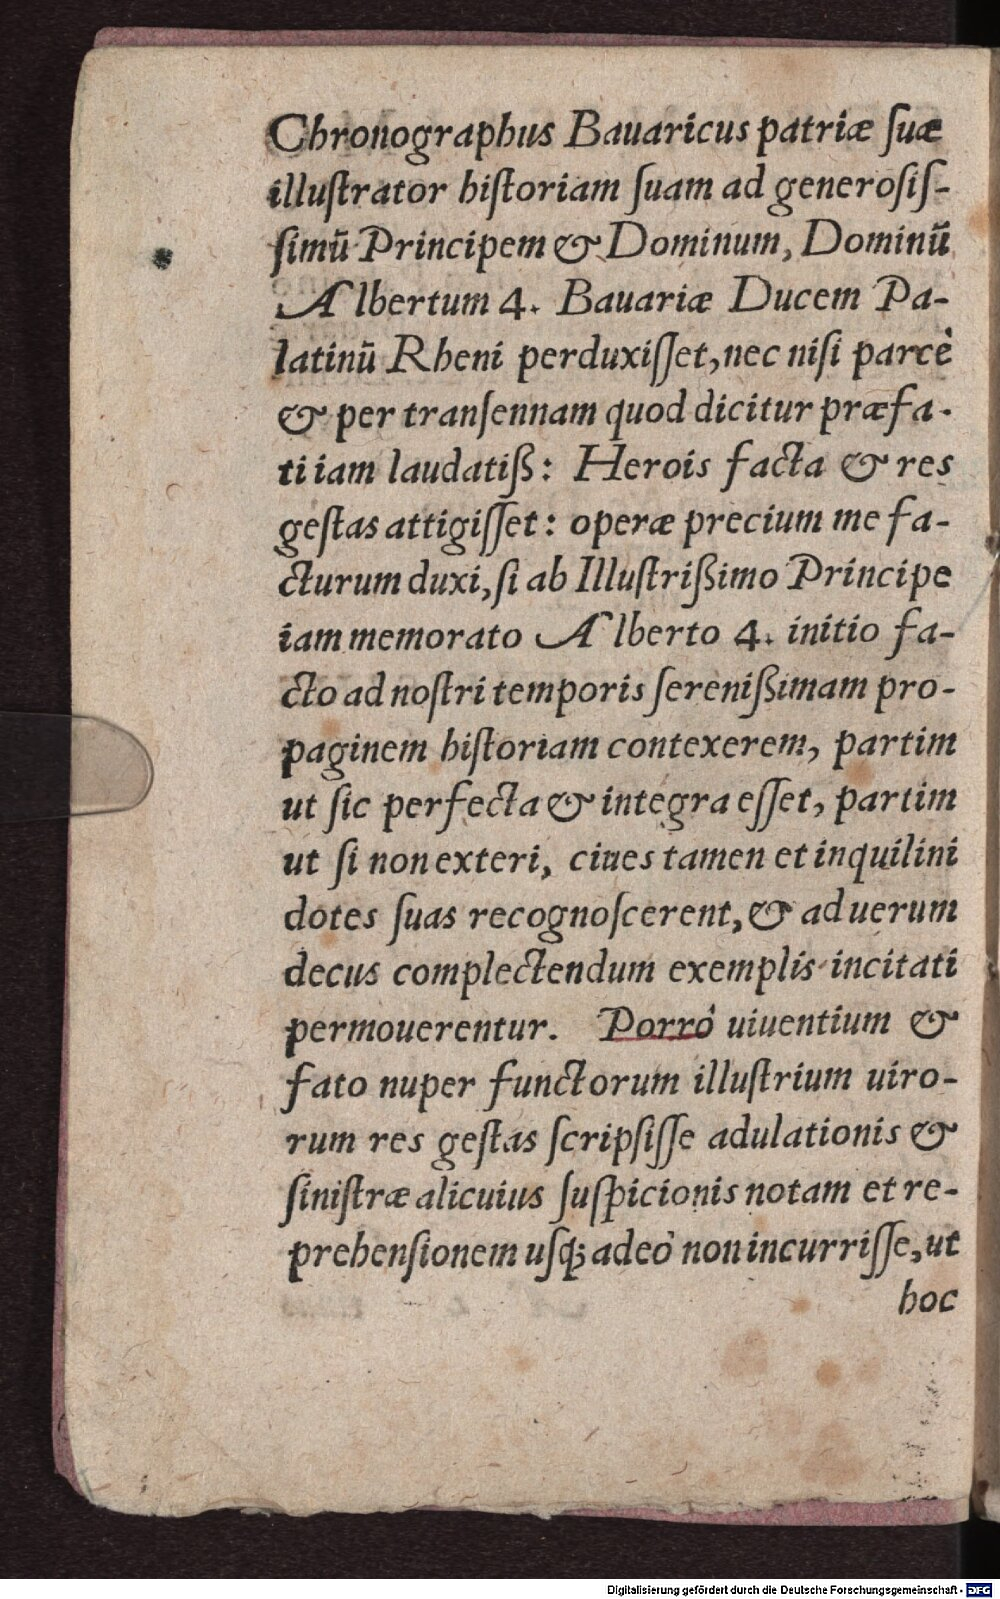 Chronographus Bauaricus patriæ ſuæ
illuſtrator hiſtoriam ſuam ad generoſiſ-
ſimū Principem & Dominum, Dominū
Albertum 4. Bauariæ Ducem Pa-
latinū Rheni perduxiſſet, nec niſi parcè
& per tranſennam quod dicitur præfa-
ti iam laudatiß: Herois facta & res
geſtas attigiſſet: operæ precium me fa-
cturum duxi, ſi ab Illuſtrißimo Principe
iam memorato Alberto 4. initio fa-
cto ad noſtri temporis ſerenißimam pro-
paginem hiſtoriam contexerem, partim
ut ſic perfecta & integra eſſet, partim
ut ſi non exteri, ciues tamen et inquilini
dotes ſuas recognoſcerent, & ad uerum
decus complectendum exemplis incitati
permouerentur. Porrò uiuentium &
fato nuper functorum illuſtrium uiro-
rum res geſtas ſcripſiſſe adulationis &
ſiniſtræ alicuius ſuſpicionis notam et re-
prehenſionem uſq; adeò non incurriſſe, ut
hoc
Digitalisierung gefördert durch die Deutsche Forschungsgemeinschaft - DFG